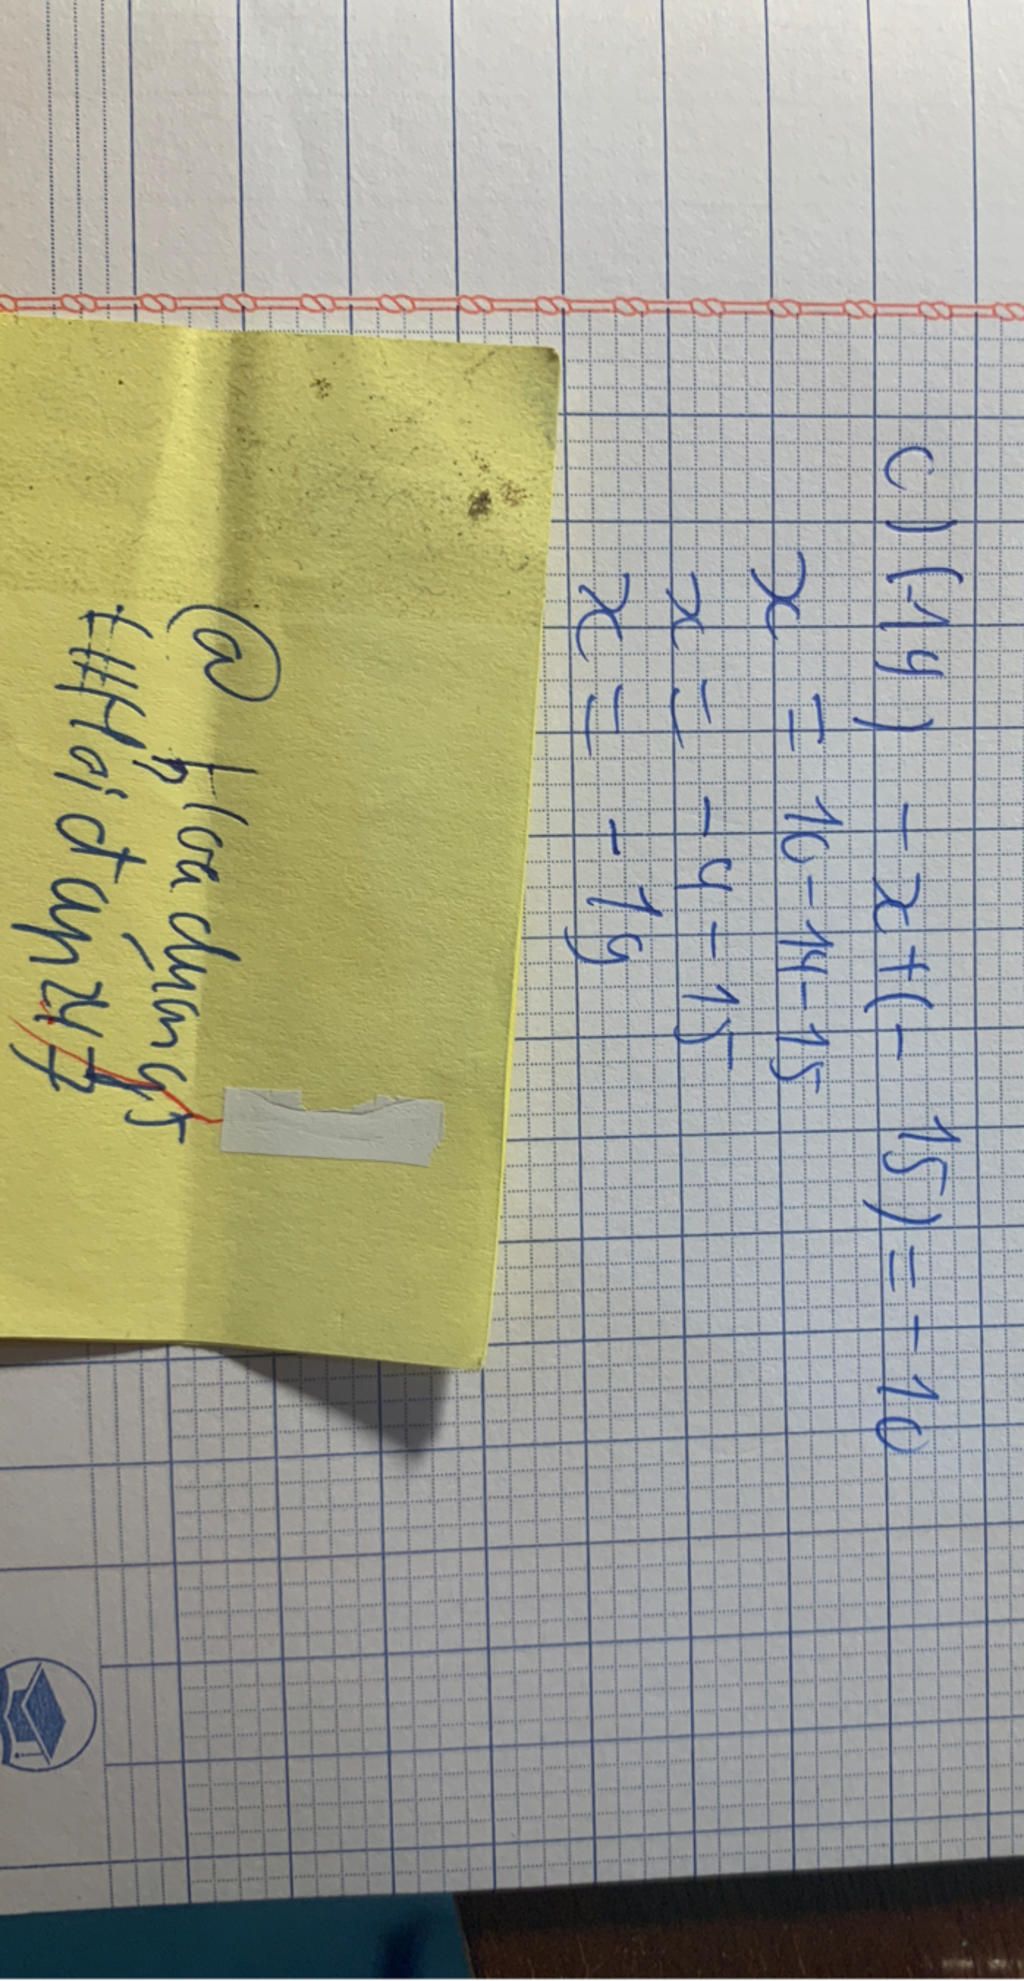 c) (-14) - x + (- 15) = - 10
x = 10 - 14 - 15
x = - 4 - 15
x = - 19
@ hoa dung
# Hỏi đáp 247